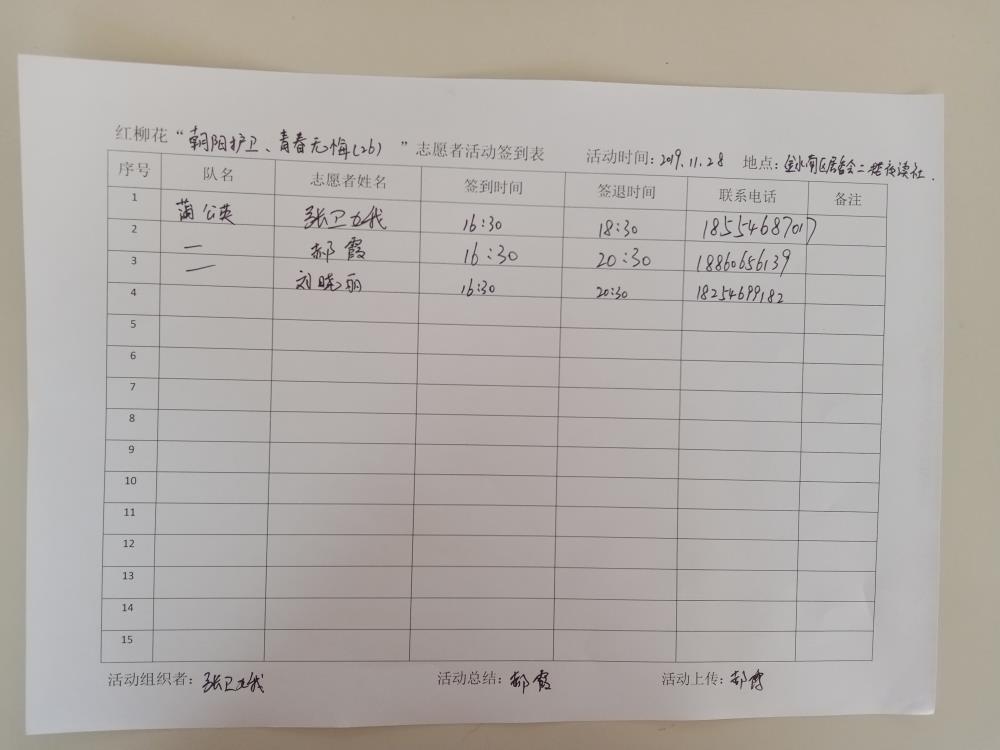 红柳花“朝阳护卫、青春无悔(26) ”志愿者活动签到表 活动时间:2019.11.28 地点:金水南区居委会二楼夜读社.
序号 队名 志愿者姓名 签到时间 签退时间 联系电话 备注
1 蒲公英 张卫 16:30 18:30 18554687017
2 一 郝霞 16:30 20:30 18860656139
3 一 刘晓丽 16:30 20:30 18254699182
4
5
6
7
8
9
10
11
12
13
14
15
活动组织者:张卫 活动总结:郝霞 活动上传:郝霞